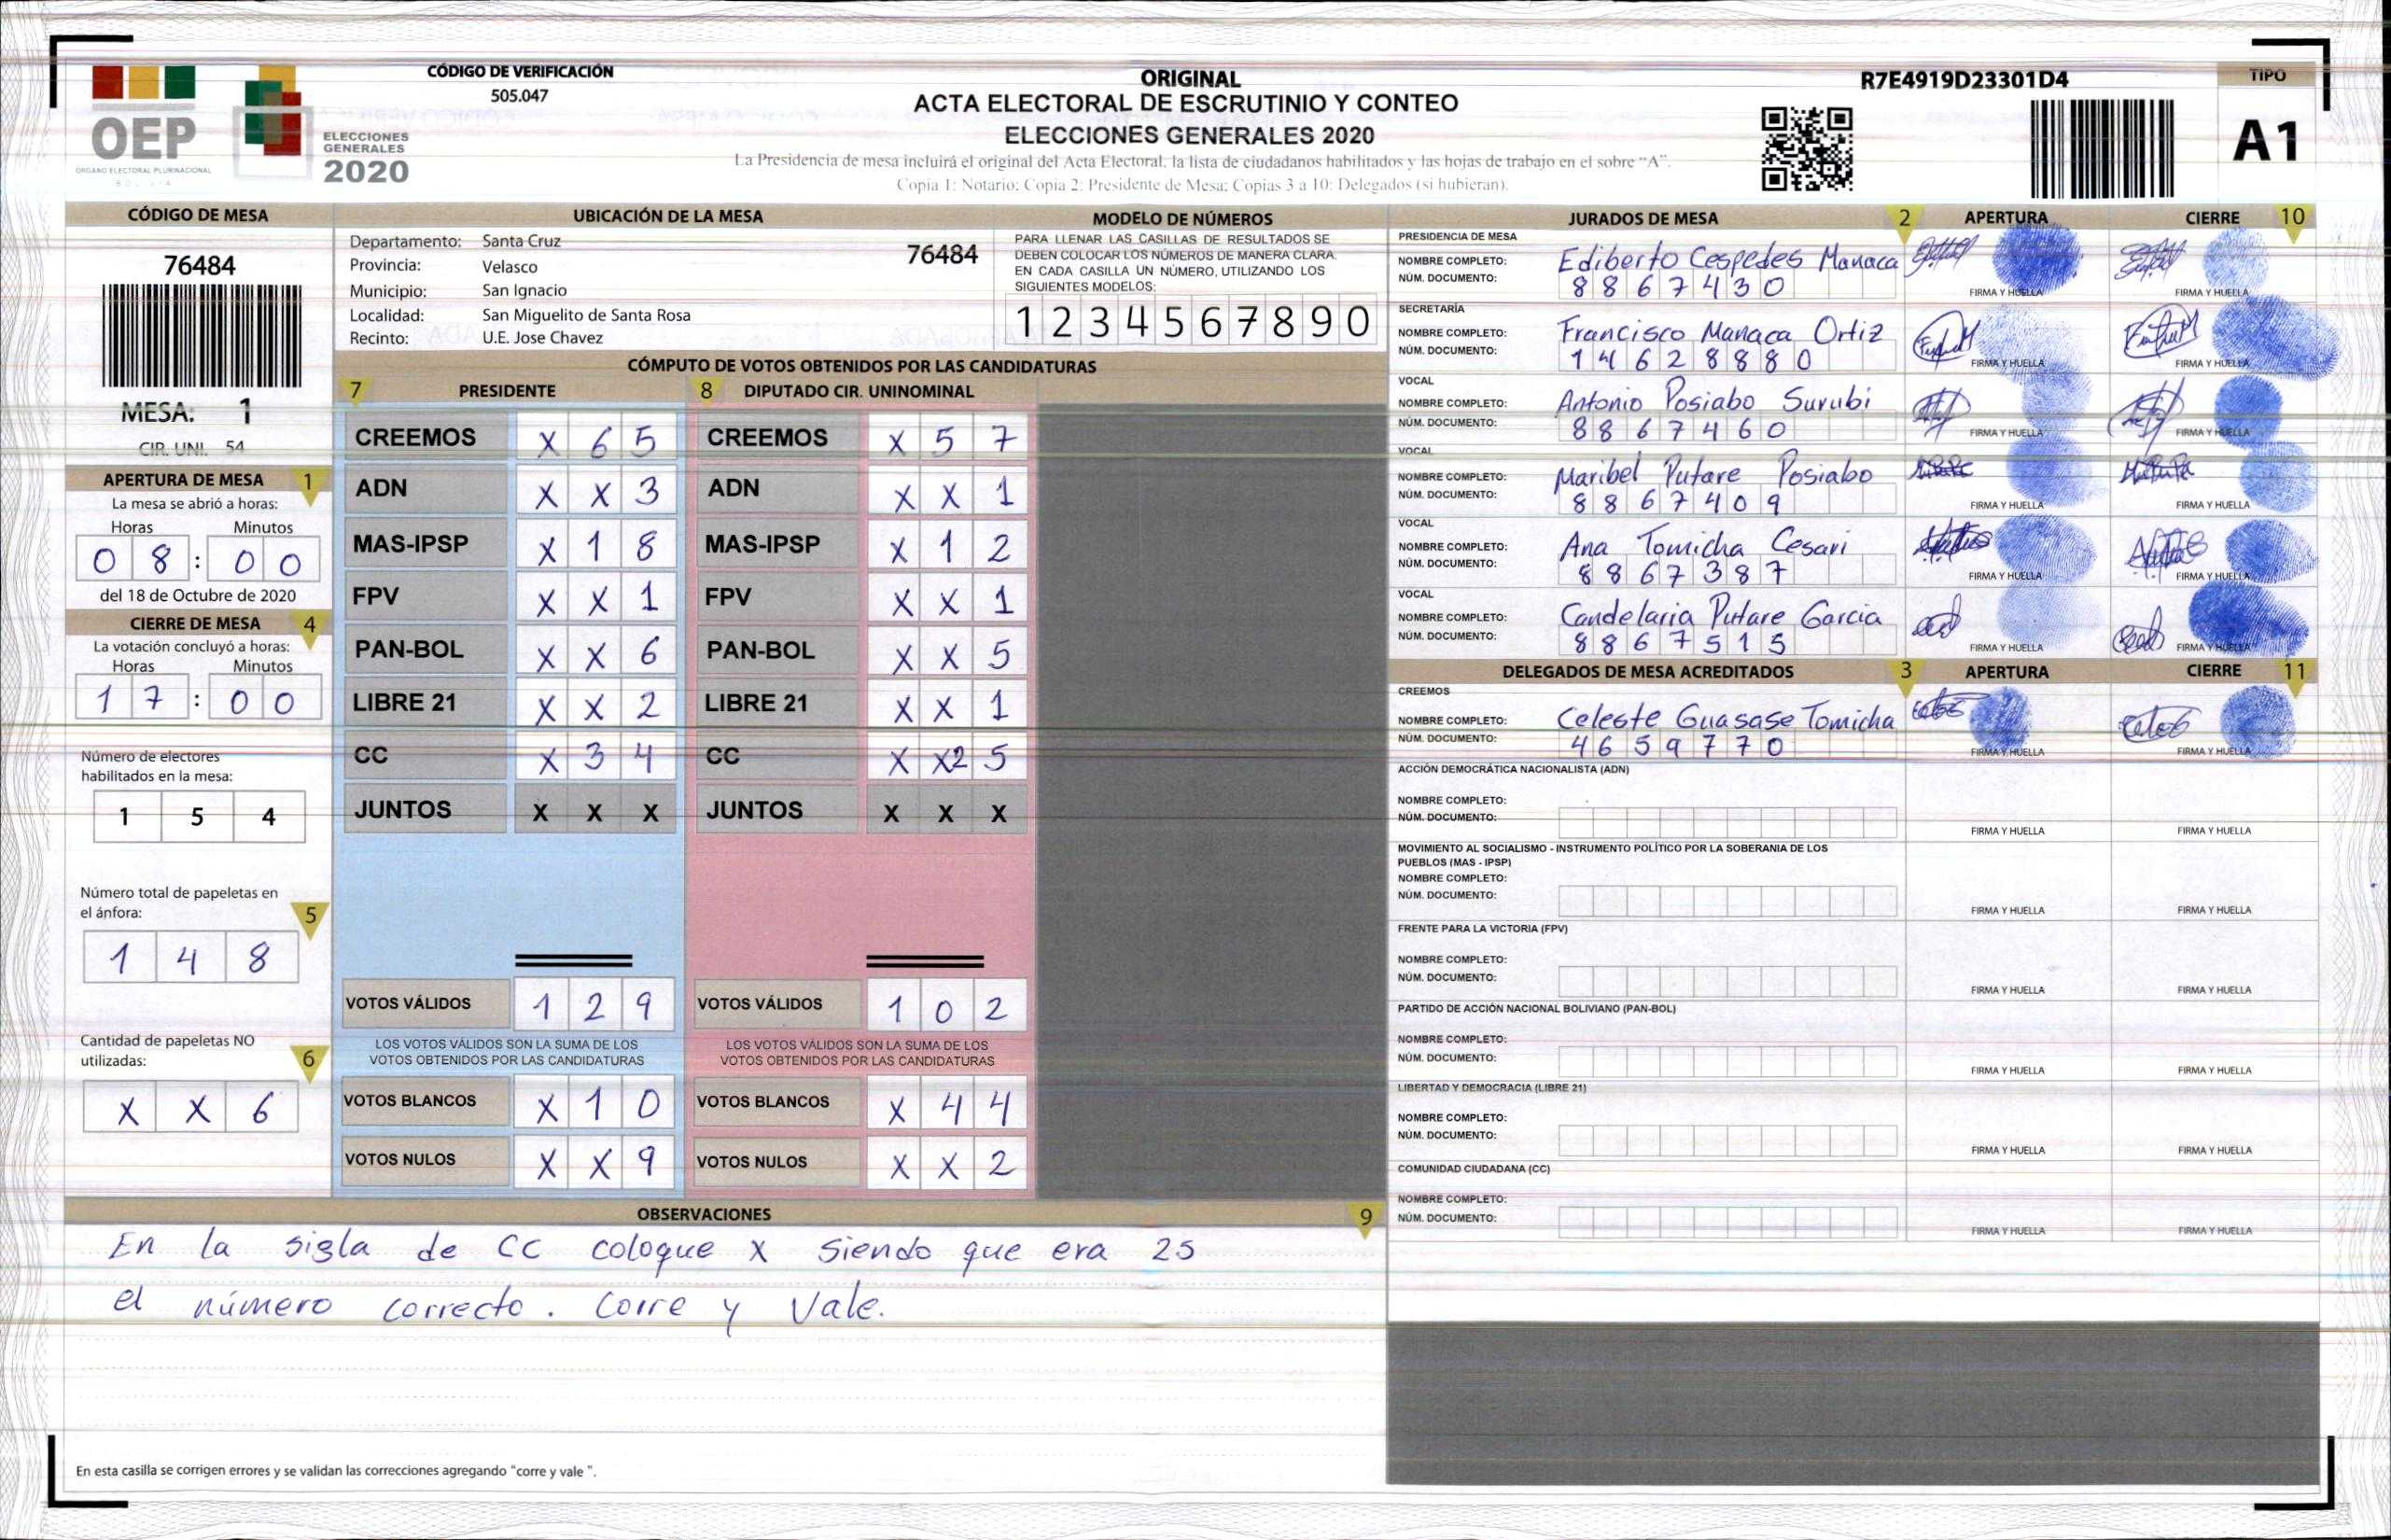 OEP
ÓRGANO ELECTORAL PLURINACIONAL
BOLIVIA
ELECCIONES
GENERALES
2020
CÓDIGO DE VERIFICACIÓN
505.047
ORIGINAL
ACTA ELECTORAL DE ESCRUTINIO Y CONTEO
ELECCIONES GENERALES 2020
La Presidencia de mesa incluirá el original del Acta Electoral, la lista de ciudadanos habilitados y las hojas de trabajo en el sobre “A”.
Copia 1: Notario; Copia 2: Presidente de Mesa; Copias 3 a 10: Delegados (si hubieran).
R7E4919D23301D4
TIPO
A1
CÓDIGO DE MESA
76484
MESA: 1
CIR. UNI. 54
APERTURA DE MESA 1
La mesa se abrió a horas:
Horas Minutos
0 8 : 0 0
del 18 de Octubre de 2020
CIERRE DE MESA 4
La votación concluyó a horas:
Horas Minutos
1 7 : 0 0
Número de electores
habilitados en la mesa:
1 5 4
Número total de papeletas en
el ánfora: 5
1 4 8
Cantidad de papeletas NO
utilizadas: 6
X X 6
UBICACIÓN DE LA MESA
Departamento: Santa Cruz
76484
Provincia: Velasco
Municipio: San Ignacio
Localidad: San Miguelito de Santa Rosa
Recinto: U.E. Jose Chavez
MODELO DE NÚMEROS
PARA LLENAR LAS CASILLAS DE RESULTADOS SE
DEBEN COLOCAR LOS NÚMEROS DE MANERA CLARA.
EN CADA CASILLA UN NÚMERO, UTILIZANDO LOS
SIGUIENTES MODELOS:
1 2 3 4 5 6 7 8 9 0
CÓMPUTO DE VOTOS OBTENIDOS POR LAS CANDIDATURAS
7 PRESIDENTE 8 DIPUTADO CIR. UNINOMINAL
CREEMOS X 6 5 CREEMOS X 5 7
ADN X X 3 ADN X X 1
MAS-IPSP X 1 8 MAS-IPSP X 1 2
FPV X X 1 FPV X X 1
PAN-BOL X X 6 PAN-BOL X X 5
LIBRE 21 X X 2 LIBRE 21 X X 1
CC X 3 4 CC X X2 5
JUNTOS X X X JUNTOS X X X
VOTOS VÁLIDOS 1 2 9 VOTOS VÁLIDOS 1 0 2
LOS VOTOS VÁLIDOS SON LA SUMA DE LOS LOS VOTOS VÁLIDOS SON LA SUMA DE LOS
VOTOS OBTENIDOS POR LAS CANDIDATURAS VOTOS OBTENIDOS POR LAS CANDIDATURAS
VOTOS BLANCOS X 1 0 VOTOS BLANCOS X 4 4
VOTOS NULOS X X 9 VOTOS NULOS X X 2
OBSERVACIONES 9
En la sigla de CC coloque X siendo que era 25
el número correcto. Corre y Vale.
En esta casilla se corrigen errores y se validan las correcciones agregando "corre y vale ".
JURADOS DE MESA 2 APERTURA CIERRE 10
PRESIDENCIA DE MESA
NOMBRE COMPLETO: Ediberto Cespedes Manaca
NÚM. DOCUMENTO: 8 8 6 7 4 3 0
FIRMA Y HUELLA FIRMA Y HUELLA
SECRETARÍA
NOMBRE COMPLETO: Francisco Manaca Ortiz
NÚM. DOCUMENTO: 1 4 6 2 8 8 8 0
FIRMA Y HUELLA FIRMA Y HUELLA
VOCAL
NOMBRE COMPLETO: Antonio Posiabo Surubi
NÚM. DOCUMENTO: 8 8 6 7 4 6 0
FIRMA Y HUELLA FIRMA Y HUELLA
VOCAL
NOMBRE COMPLETO: Maribel Putare Posiabo
NÚM. DOCUMENTO: 8 8 6 7 4 0 9
FIRMA Y HUELLA FIRMA Y HUELLA
VOCAL
NOMBRE COMPLETO: Ana Tomicha Cesari
NÚM. DOCUMENTO: 8 8 6 7 3 8 7
FIRMA Y HUELLA FIRMA Y HUELLA
VOCAL
NOMBRE COMPLETO: Candelaria Putare Garcia
NÚM. DOCUMENTO: 8 8 6 7 5 1 5
FIRMA Y HUELLA FIRMA Y HUELLA
DELEGADOS DE MESA ACREDITADOS 3 APERTURA CIERRE 11
CREEMOS
NOMBRE COMPLETO: Celeste Guasase Tomicha
NÚM. DOCUMENTO: 4 6 5 9 7 7 0
FIRMA Y HUELLA FIRMA Y HUELLA
ACCIÓN DEMOCRÁTICA NACIONALISTA (ADN)
NOMBRE COMPLETO:
NÚM. DOCUMENTO:
FIRMA Y HUELLA FIRMA Y HUELLA
MOVIMIENTO AL SOCIALISMO - INSTRUMENTO POLÍTICO POR LA SOBERANIA DE LOS
PUEBLOS (MAS - IPSP)
NOMBRE COMPLETO:
NÚM. DOCUMENTO:
FIRMA Y HUELLA FIRMA Y HUELLA
FRENTE PARA LA VICTORIA (FPV)
NOMBRE COMPLETO:
NÚM. DOCUMENTO:
FIRMA Y HUELLA FIRMA Y HUELLA
PARTIDO DE ACCIÓN NACIONAL BOLIVIANO (PAN-BOL)
NOMBRE COMPLETO:
NÚM. DOCUMENTO:
FIRMA Y HUELLA FIRMA Y HUELLA
LIBERTAD Y DEMOCRACIA (LIBRE 21)
NOMBRE COMPLETO:
NÚM. DOCUMENTO:
FIRMA Y HUELLA FIRMA Y HUELLA
COMUNIDAD CIUDADANA (CC)
NOMBRE COMPLETO:
NÚM. DOCUMENTO:
FIRMA Y HUELLA FIRMA Y HUELLA